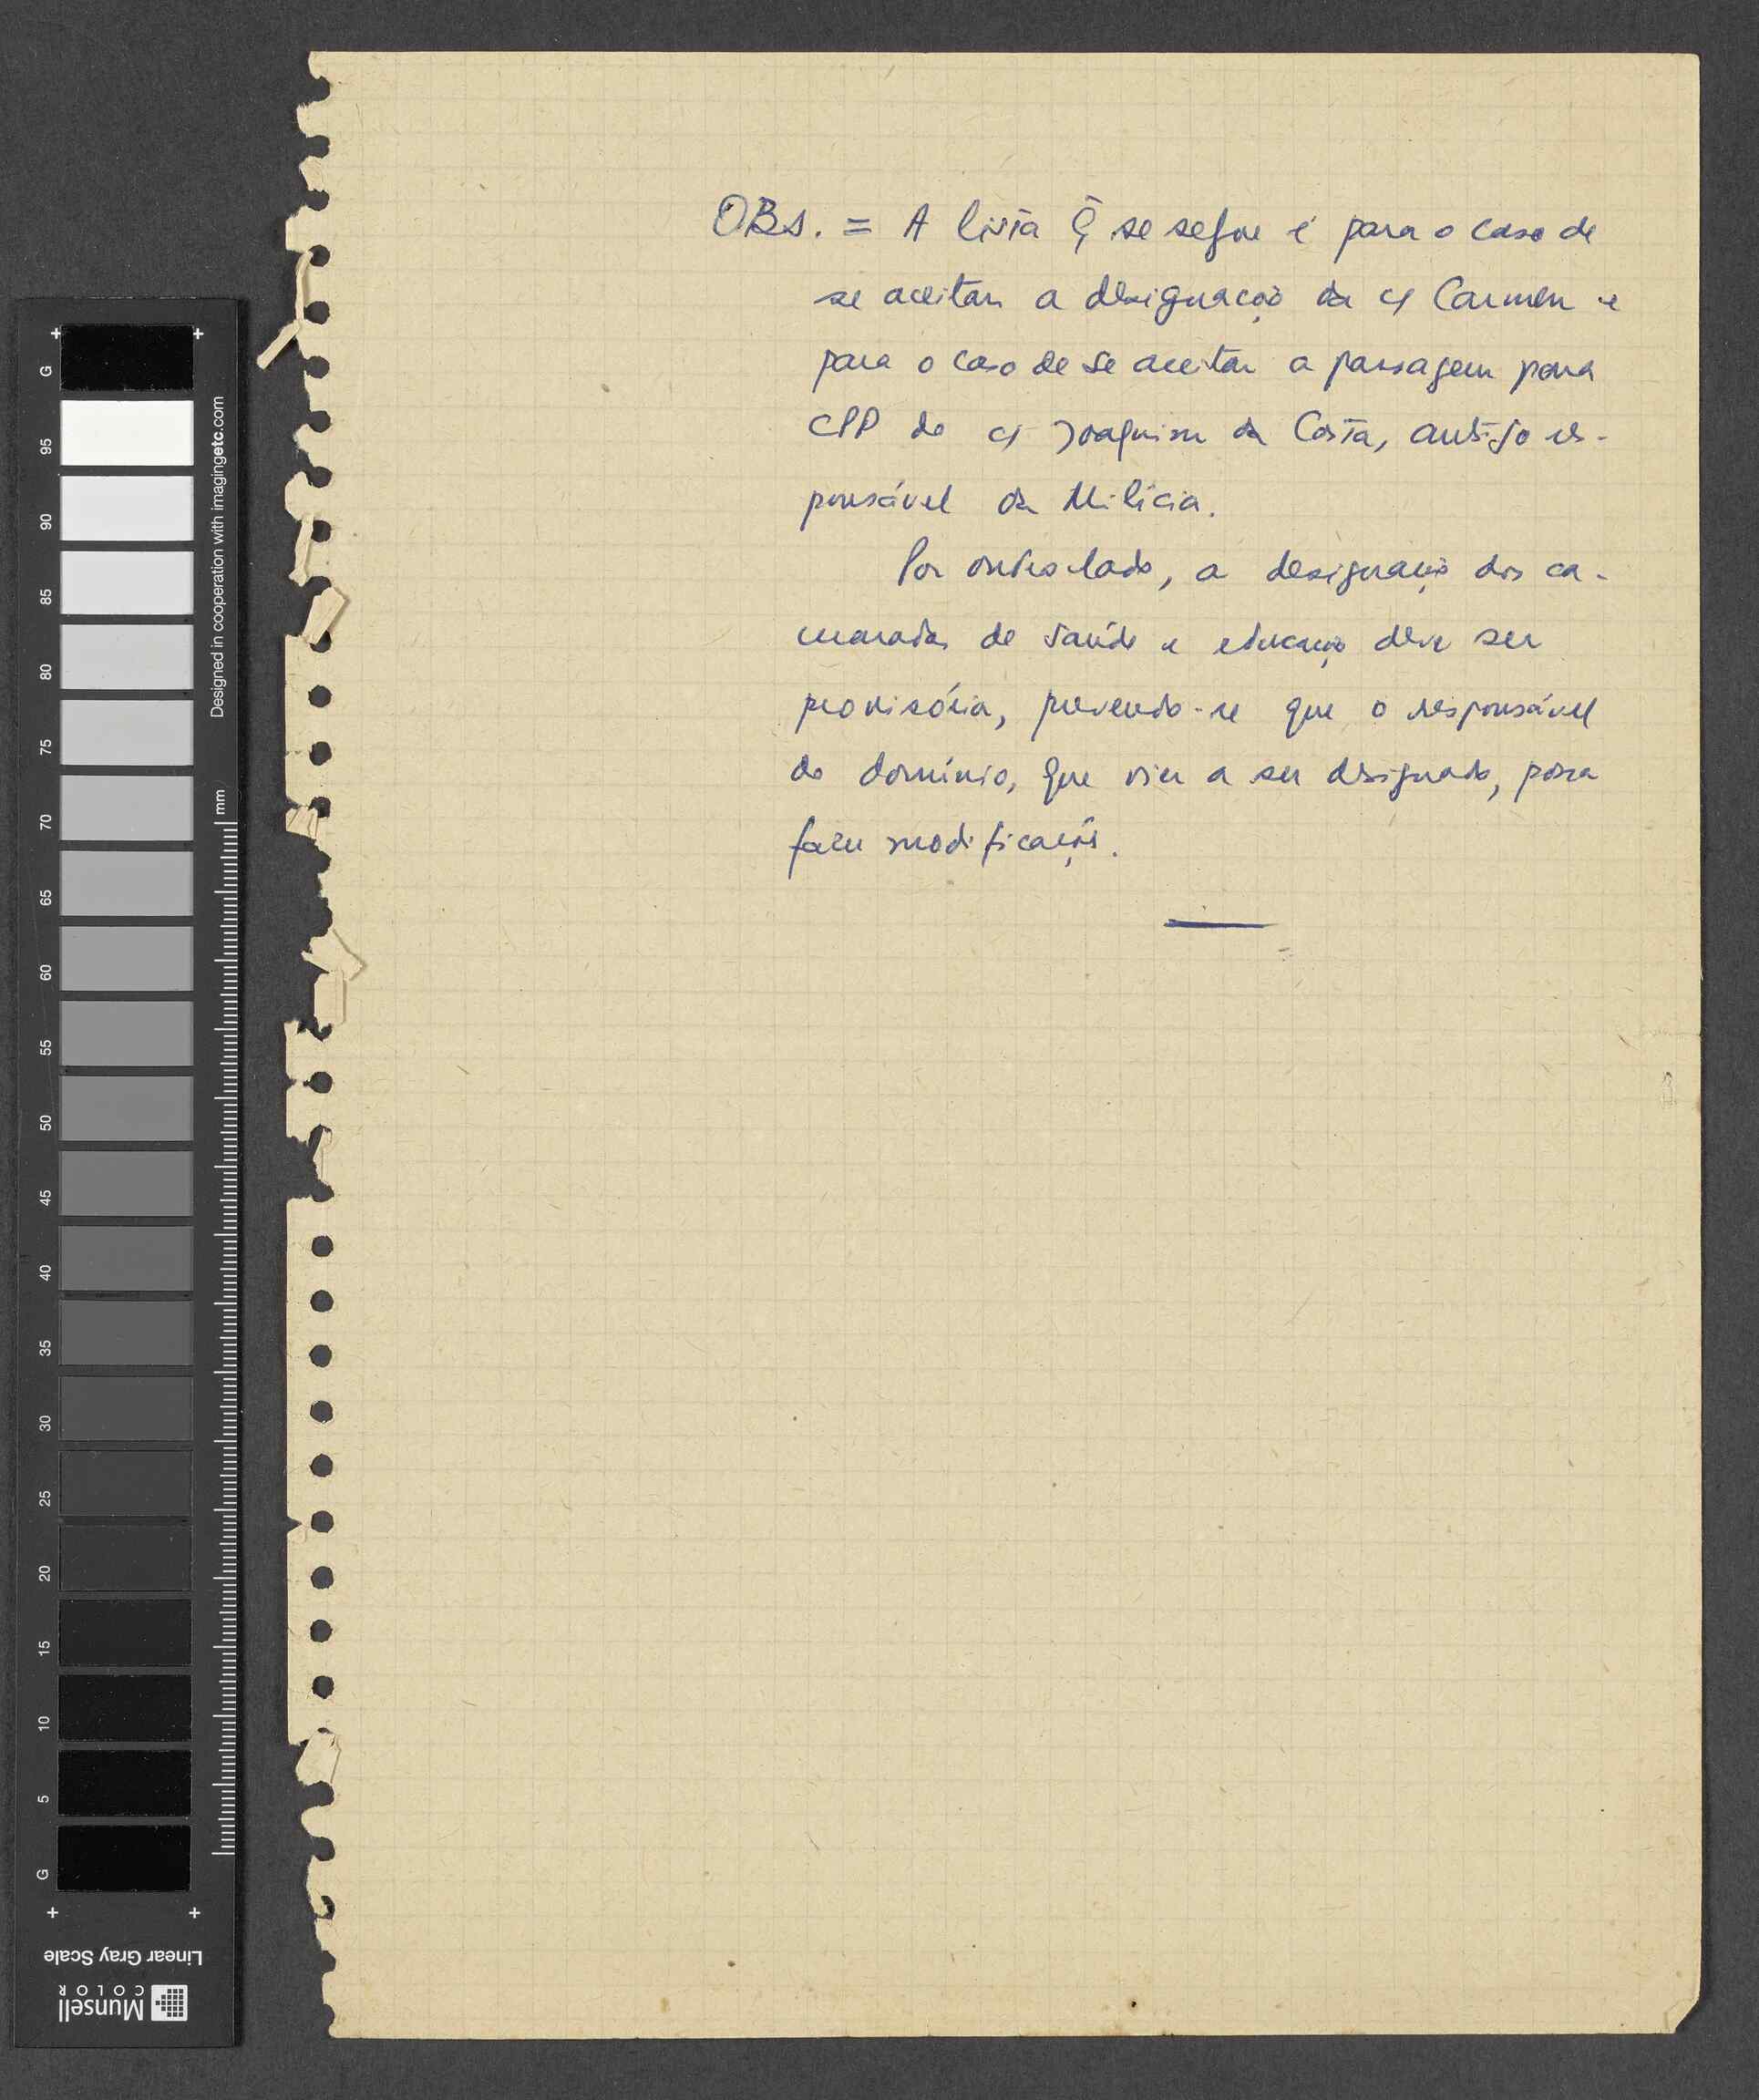 OBS. = A lista q̃ se segue é para o caso de
se aceitar a designação da cda Carmen e
para o caso de se aceitar a passagem para
CPP do cda Joaquim da Costa, antigo res-
ponsável da Milícia.
Por outro lado, a designação dos ca-
maradas de saúde e educação deve ser
provisória, prevendo-se que o responsável
do domínio, que vier a ser designado, possa
fazer modificações.
G
95
90
85
80
75
70
65
60
55
50
45
40
35
30
25
20
15
10
5
G
Designed in cooperation with imagingetc.com
mm
Linear Gray Scale
Munsell
COLOR